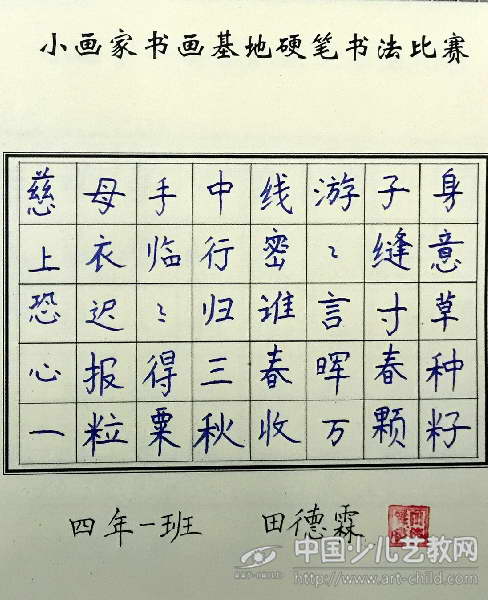 小画家书画基地硬笔书法比赛
慈母手中线游子身
上衣临行密〻缝意
恐迟〻归谁言寸草
心报得三春晖春种
一粒粟秋收万颗籽
四年一班 田德霖
中国少儿艺教网
ART-CHILD
http://www.art-child.com